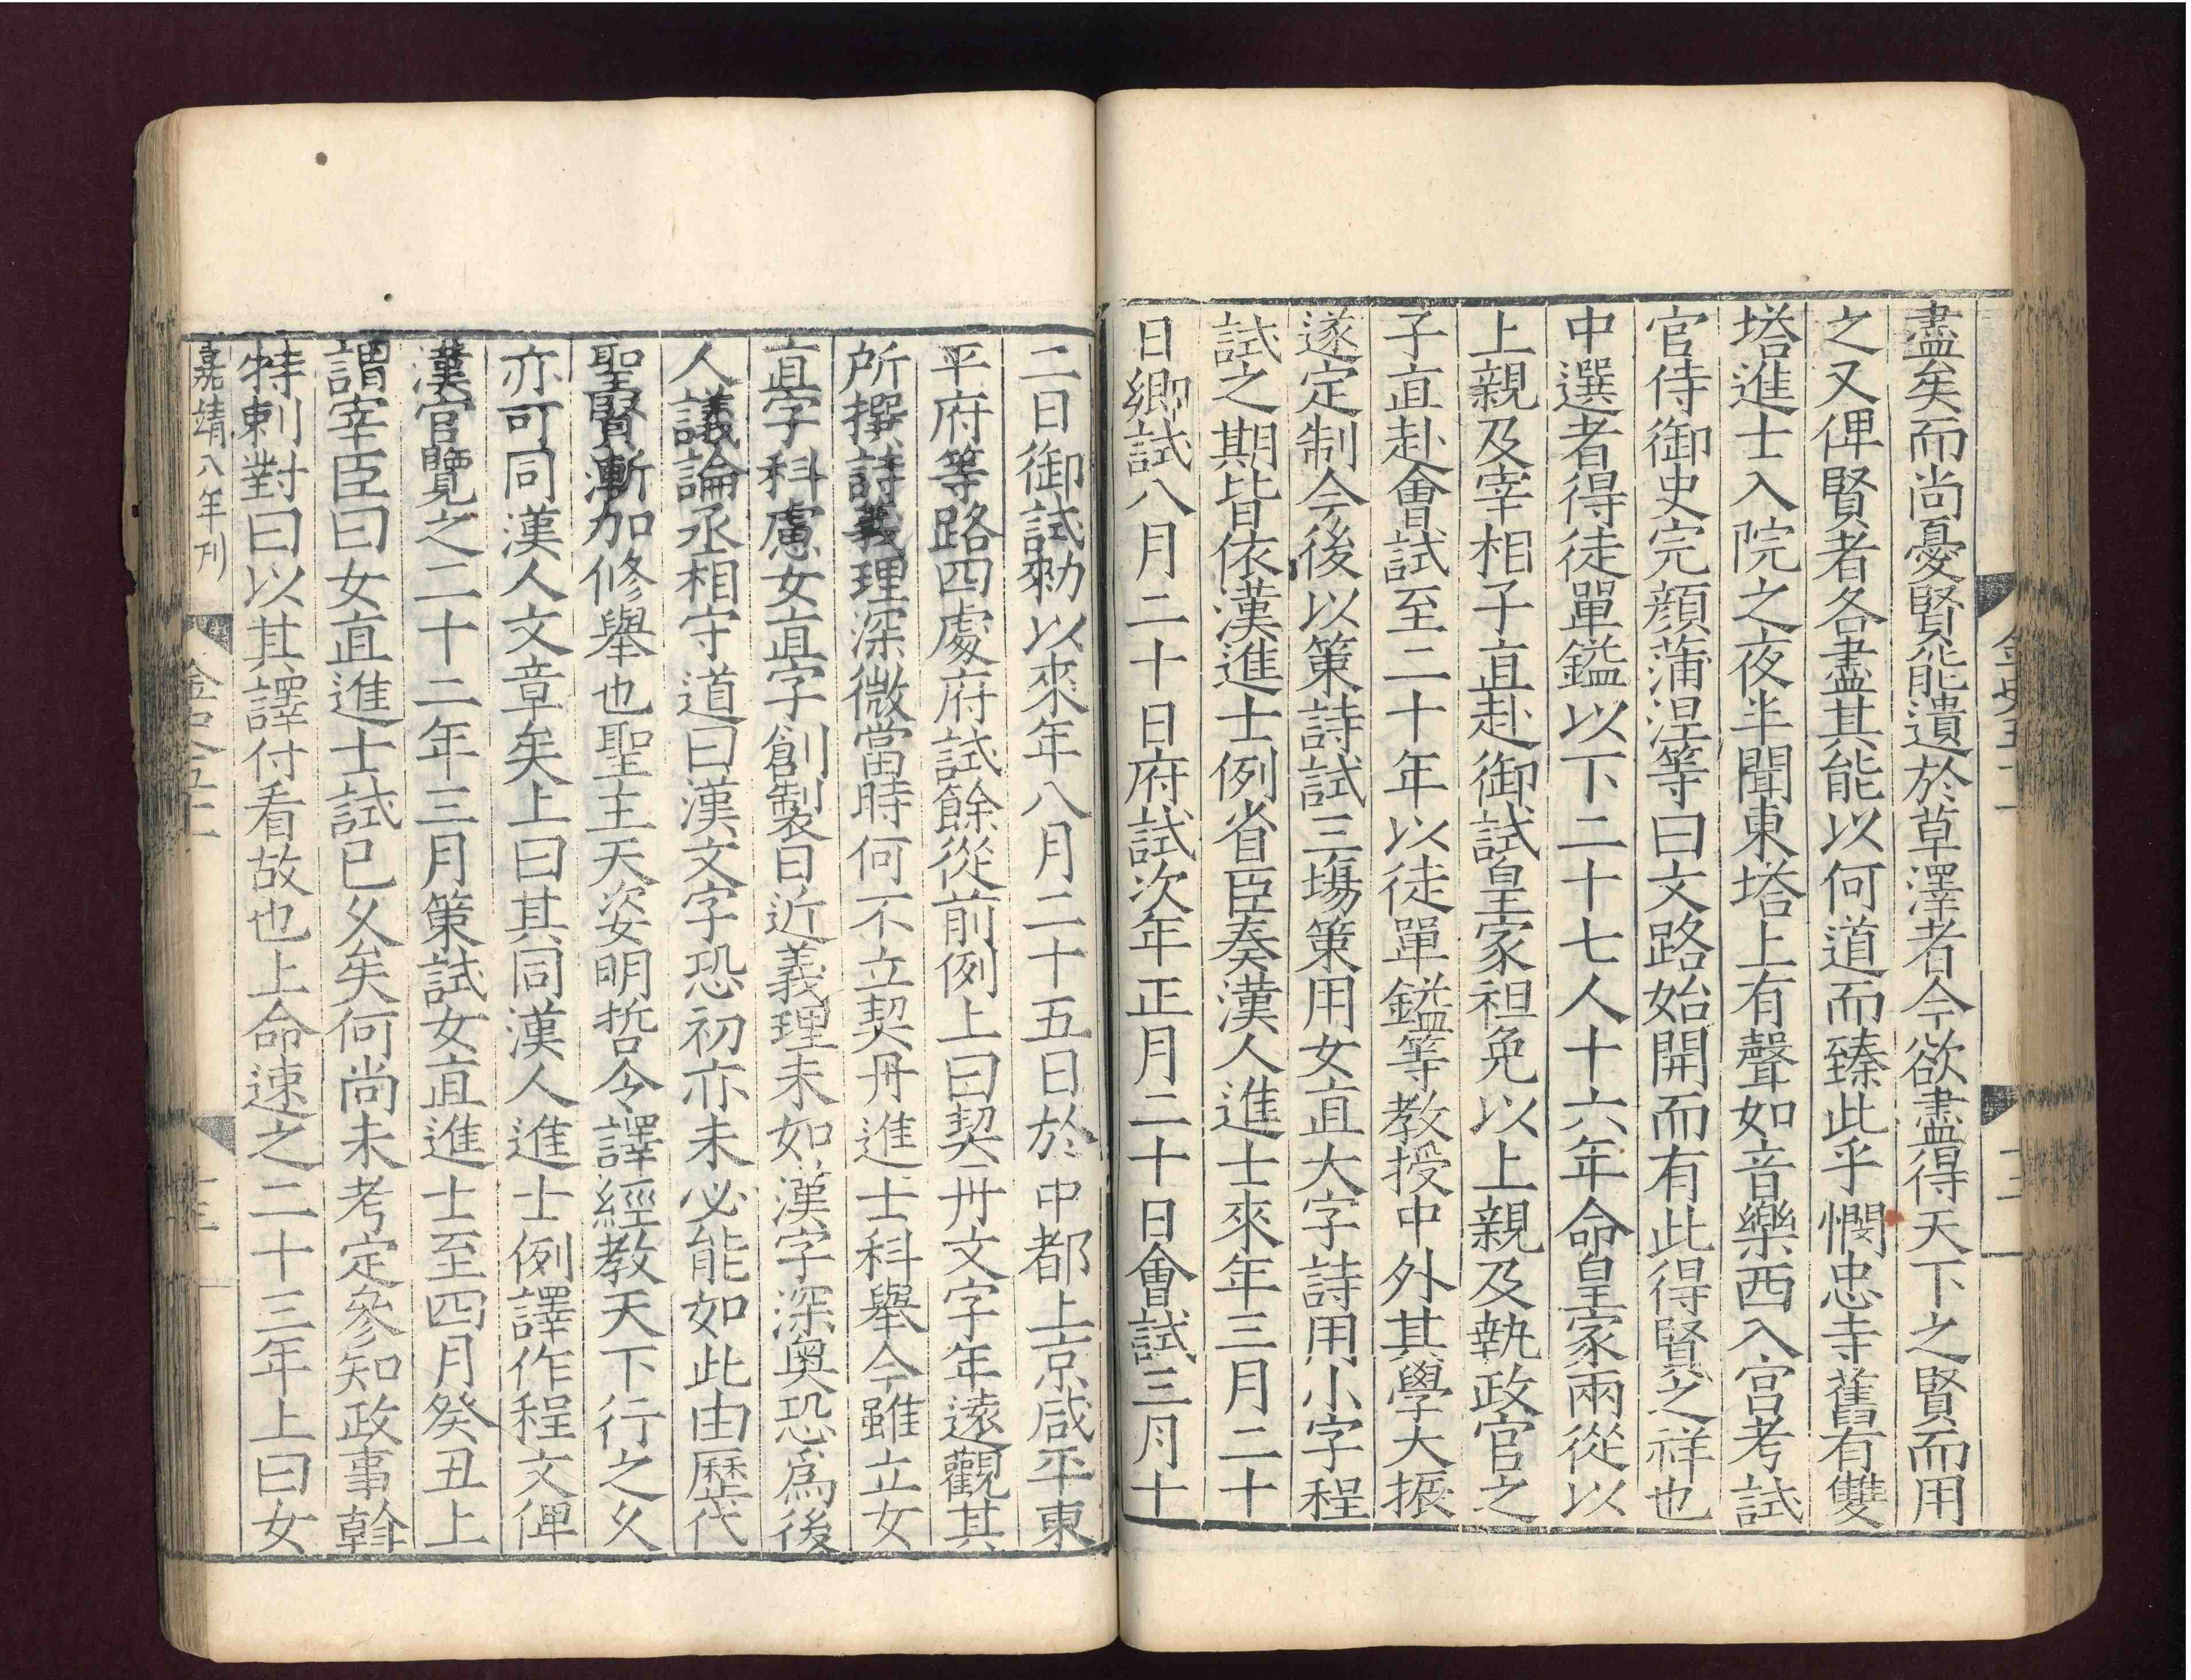 盡矣而尚憂賢能遺於草澤者今欲盡得天下之賢而用
之又俾賢者各盡其能以何道而臻此乎憫忠寺舊有雙
塔進士入院之夜半聞東塔上有聲如音樂西入宫考試
官侍御史完顔蒲涅等曰文路始開而有此得賢之祥也
中選者得徒單鎰以下二十七人十六年命皇家兩從以
上親及宰相子直赴御試皇家袒免以上親及執政官之
子直赴會試至二十年以徒單鎰等教授中外其學大振
遂定制今後以策詩試三場策用女直大字詩用小字程
試之期皆依漢進士例省臣奏漢人進士來年三月二十
日鄉試八月二十日府試次年正月二十日會試三月十
金史五十一
十二
二日御試勑以來年八月二十五日於中都上京咸平東
平府等路四處府試餘從前例上曰契丹文字年遠觀其
所撰詩義理深微當時何不立契丹進士科舉今雖立女
直字科慮女直字創製日近義理未如漢字深奥恐爲後
人議論丞相守道曰漢文字恐初亦未必能如此由歷代
聖賢漸加修舉也聖主天姿明哲令譯經教天下行之久
亦可同漢人文章矣上曰其同漢人進士例譯作程文俾
漢官覽之二十二年三月策試女直進士至四月癸丑上
謂宰臣曰女直進士試已久矣何尚未考定參知政事斡
特剌對曰以其譯付看故也上命速之二十三年上曰女
嘉靖八年刊
金史五十一
十三